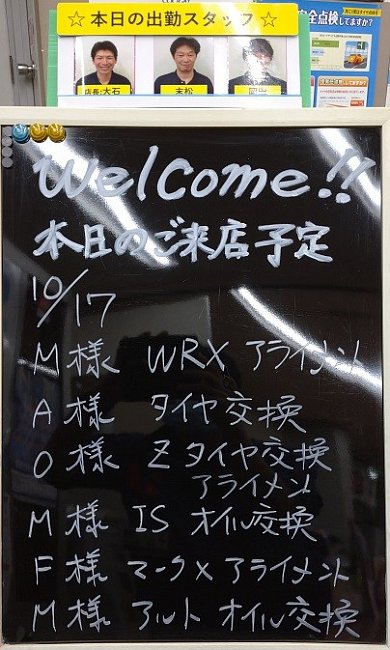 ☆本日の出勤スタッフ☆
店長:大石
末松
Welcome!!
本日のご来店予定
10/17
M様 WRX アライメント
A様 タイヤ交換
O様 Z タイヤ交換
アライメント
M様 IS オイル交換
F様 マークX アライメント
M様 アルト オイル交換